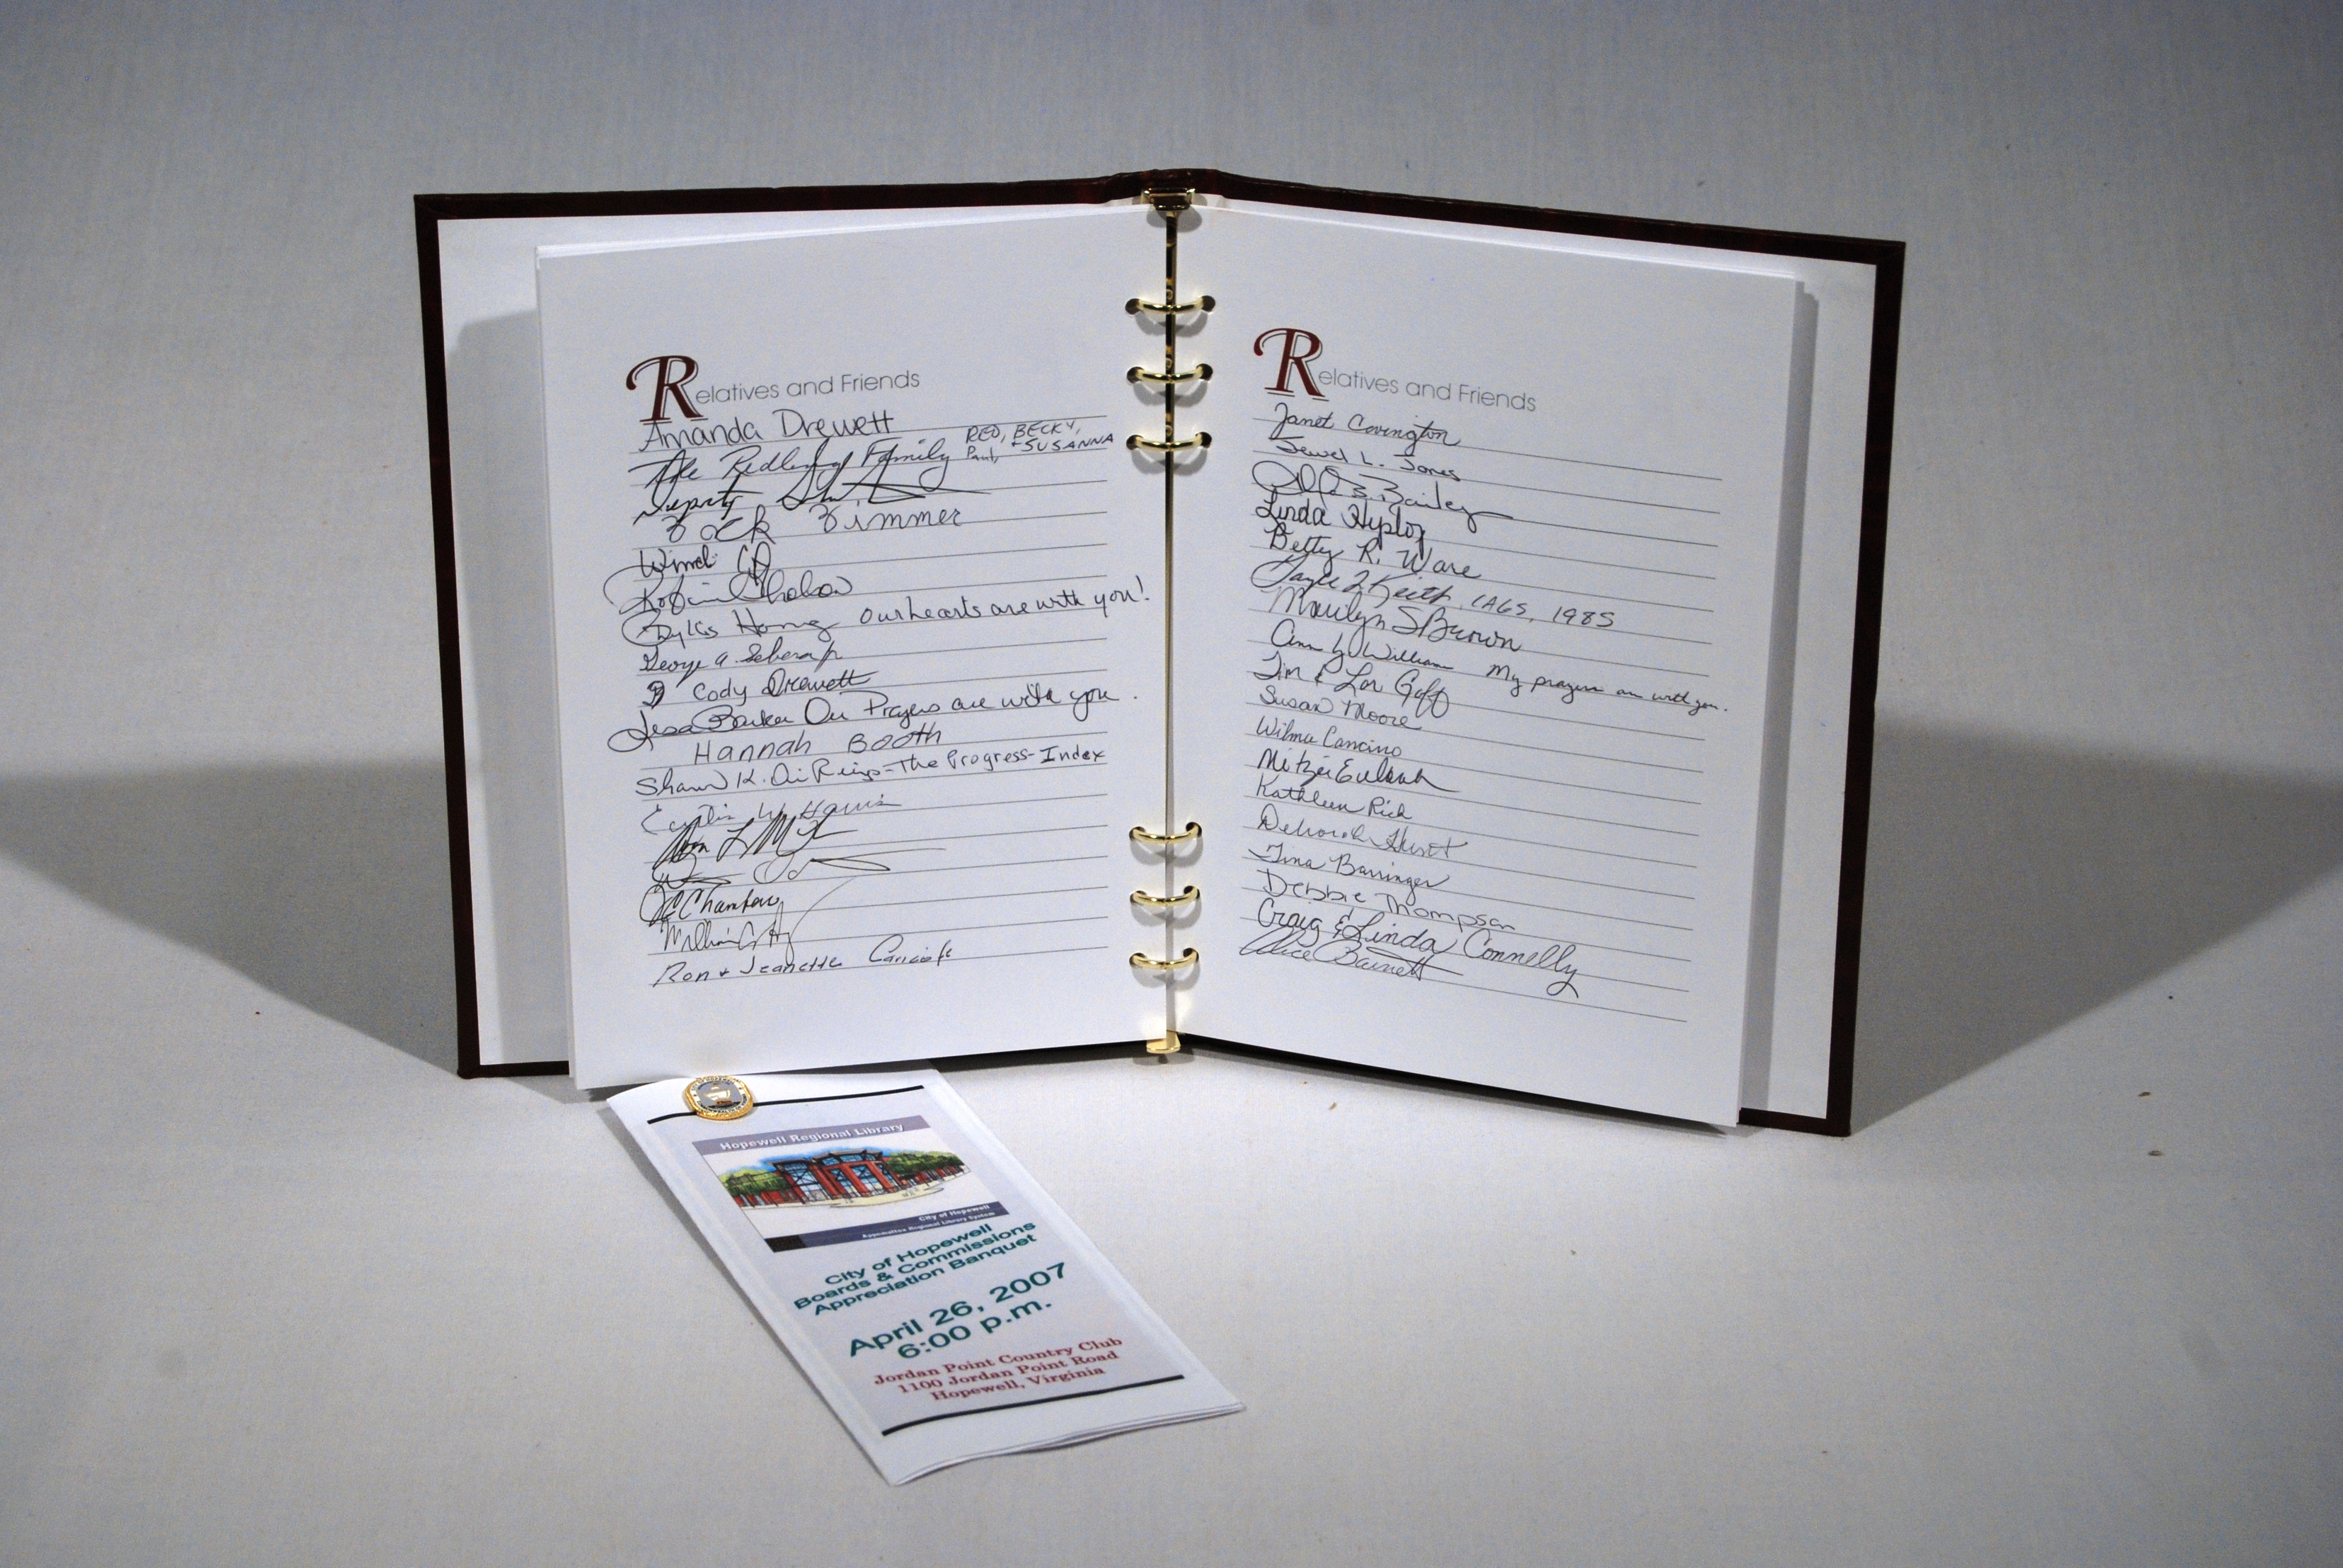 Relatives and Friends
Amanda Drewett
The Family RED, BECKY,
Paul, + SUSANNA
Deputy
Zack Zimmer
Robin
Our hearts are with you!
George A.
Cody Drewett
Lesa Barker Our Prayers are with you.
Hannah Booth
Shawn K. - The Progress-Index
Curtis W. Harris
Ron + Jeanette
Relatives and Friends
Janet Covington
Jewel L. Jones
Bailey
Linda
Betty R. Ware
Keith, CAGS, 1985
Marilyn S Brown
Ann Y. William My prayers are with you.
Tim & Lori Goff
Susan Moore
Wilma Cancino
Mitzi Eubank
Kathleen Rich
Deborah Hurst
Tina Barringer
Debbie Thompson
Craig & Linda Connelly
Alice Barnett
Hopewell Regional Library
City of Hopewell
Appomattox Regional Library System
City of Hopewell
Boards & Commissions
Appreciation Banquet
April 26, 2007
6:00 p.m.
Jordan Point Country Club
1100 Jordan Point Road
Hopewell, Virginia